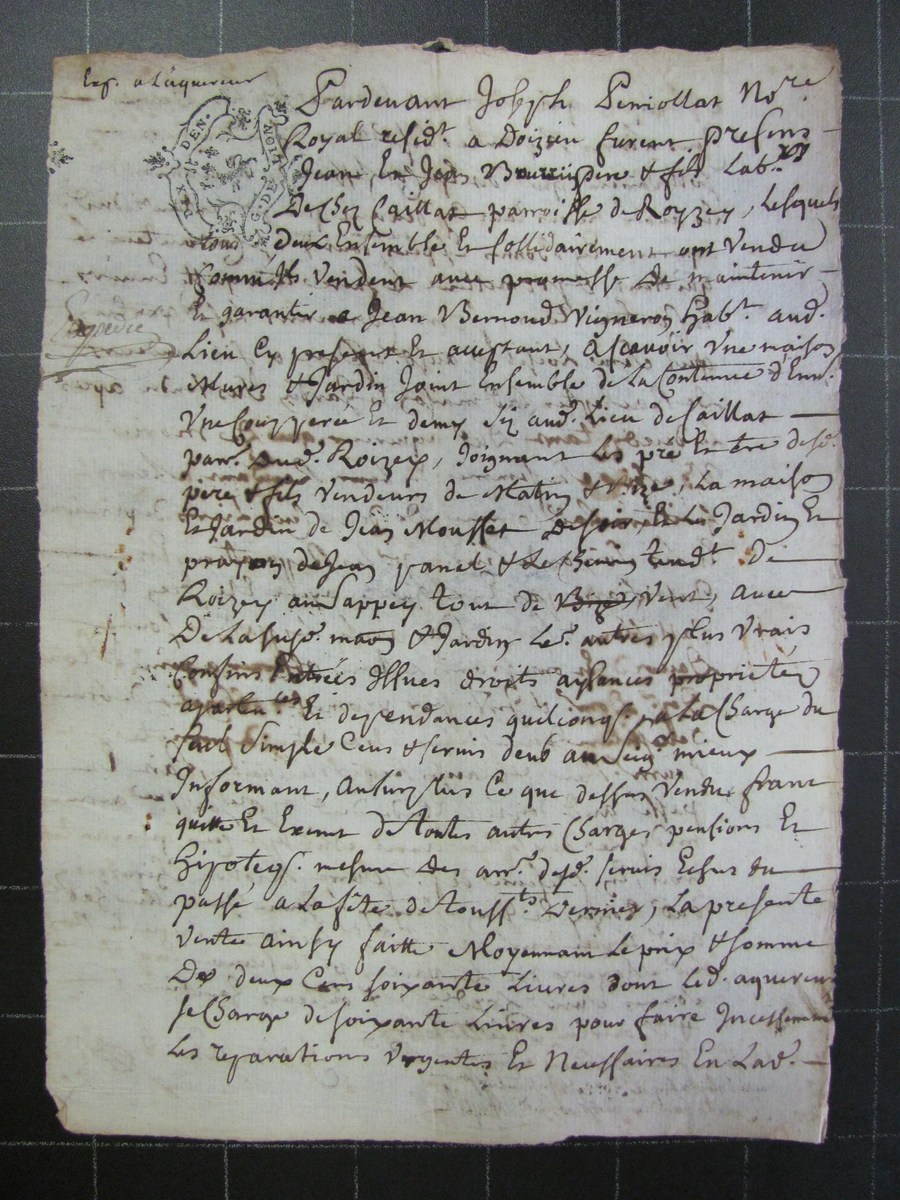 Exp. a l'aquereur
Pardevant Joseph Peniollat No.re
Royal resid.t a Doizieu furent presens
Jean Et Jean pere & fils Lab.rs
De chez Caillat parroisse de Royzey, Lesquels
tous deux Ensemble Et sollidairement ont Vendu
Comme Ils Vendent avec promesse de maintenir
Et garantir a Jean Bernoud Vigneron Hab.t aud.
Expedié
Lieu Cy present Et acceptant, Ascavoir Une maison
Mures & Jardin Joint Ensemble de La Contenue d'Env.
Une Coupperée Et demy Siz aud. Lieu de Caillat
parr. dud. Roizey, Joignant Les pré Et tre desd.
pere & fils Vendeurs de Matin & bize, La maison
Et Jardin de Jean Mousset de soir, Et Le Jardin Et
de Jean & Le Chemin tend.t de
Roizey au Sappey tout de Vent, avec
De La susd. maon & Jardin Les autres plus Vrais
Confins Entrées Issues droits aysances proprietés
apartn.ces Et dependances quelconqs. a La Charge du
seul simple Cens & servis deub au Seig.r mieux
Informant, au surplus Ce que dessus Vendu franc
quitte Et Exempt de toutes autres Charges pensions Et
Hipoteqs. mesme des arr. desd. servis Echus du
passé a La fête de Touss.ts Dernier, La presente
Vente ainsy faitte Moyennant Le prix & somme
De deux Cens soixante Livres dont Led. aquereur
se Charge de soixante Livres pour faire Incessemment
Les reparations Urgentes Et Necessaires En Lad.